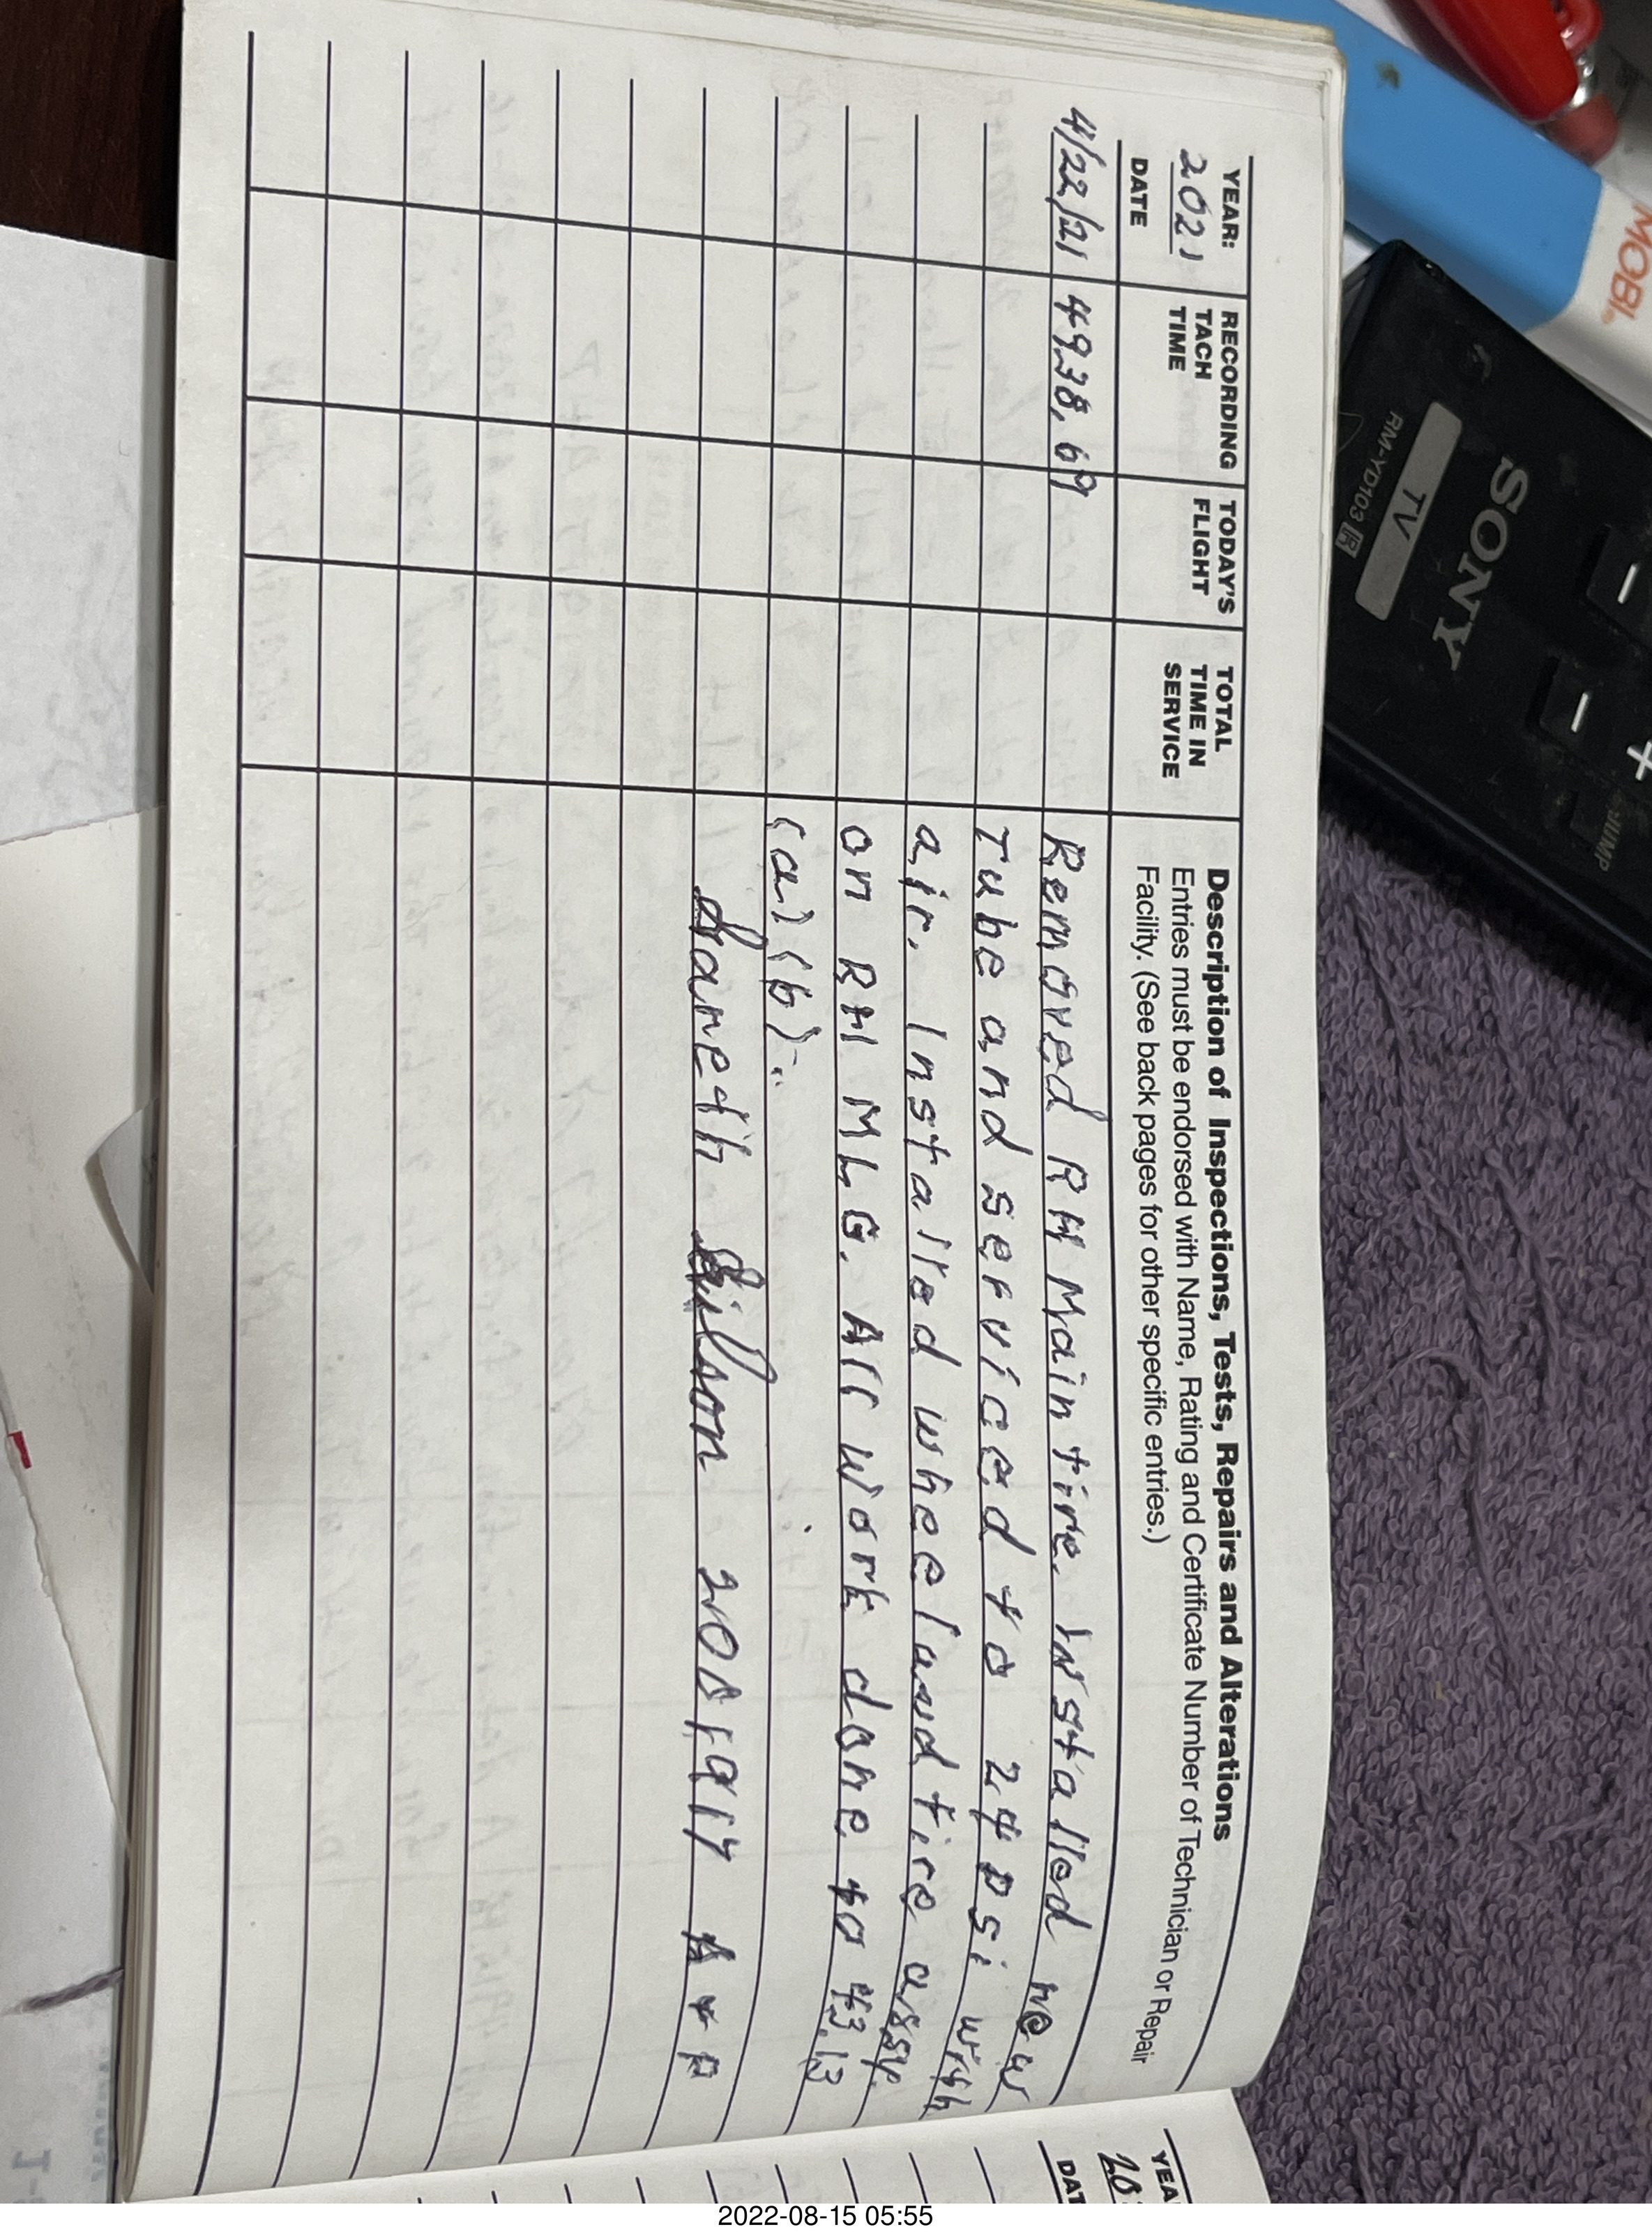 YEAR:
2021
DATE
RECORDING
TACH
TIME
TODAY'S
FLIGHT
TOTAL
TIME IN
SERVICE
Description of Inspections, Tests, Repairs and Alterations
Entries must be endorsed with Name, Rating and Certificate Number of Technician or Repair
Facility. (See back pages for other specific entries.)
4/22/21 4938.69 Removed RH Main tire. Installed new
Tube and serviced to 24 psi with
air. Installed wheel and tire assy.
on RH MLG. All work done to 43.13
(a) (b).
A & P
SONY
TV
RM-YD103
JUMP
MOBI
YEA
DAT
2022-08-15 05:55